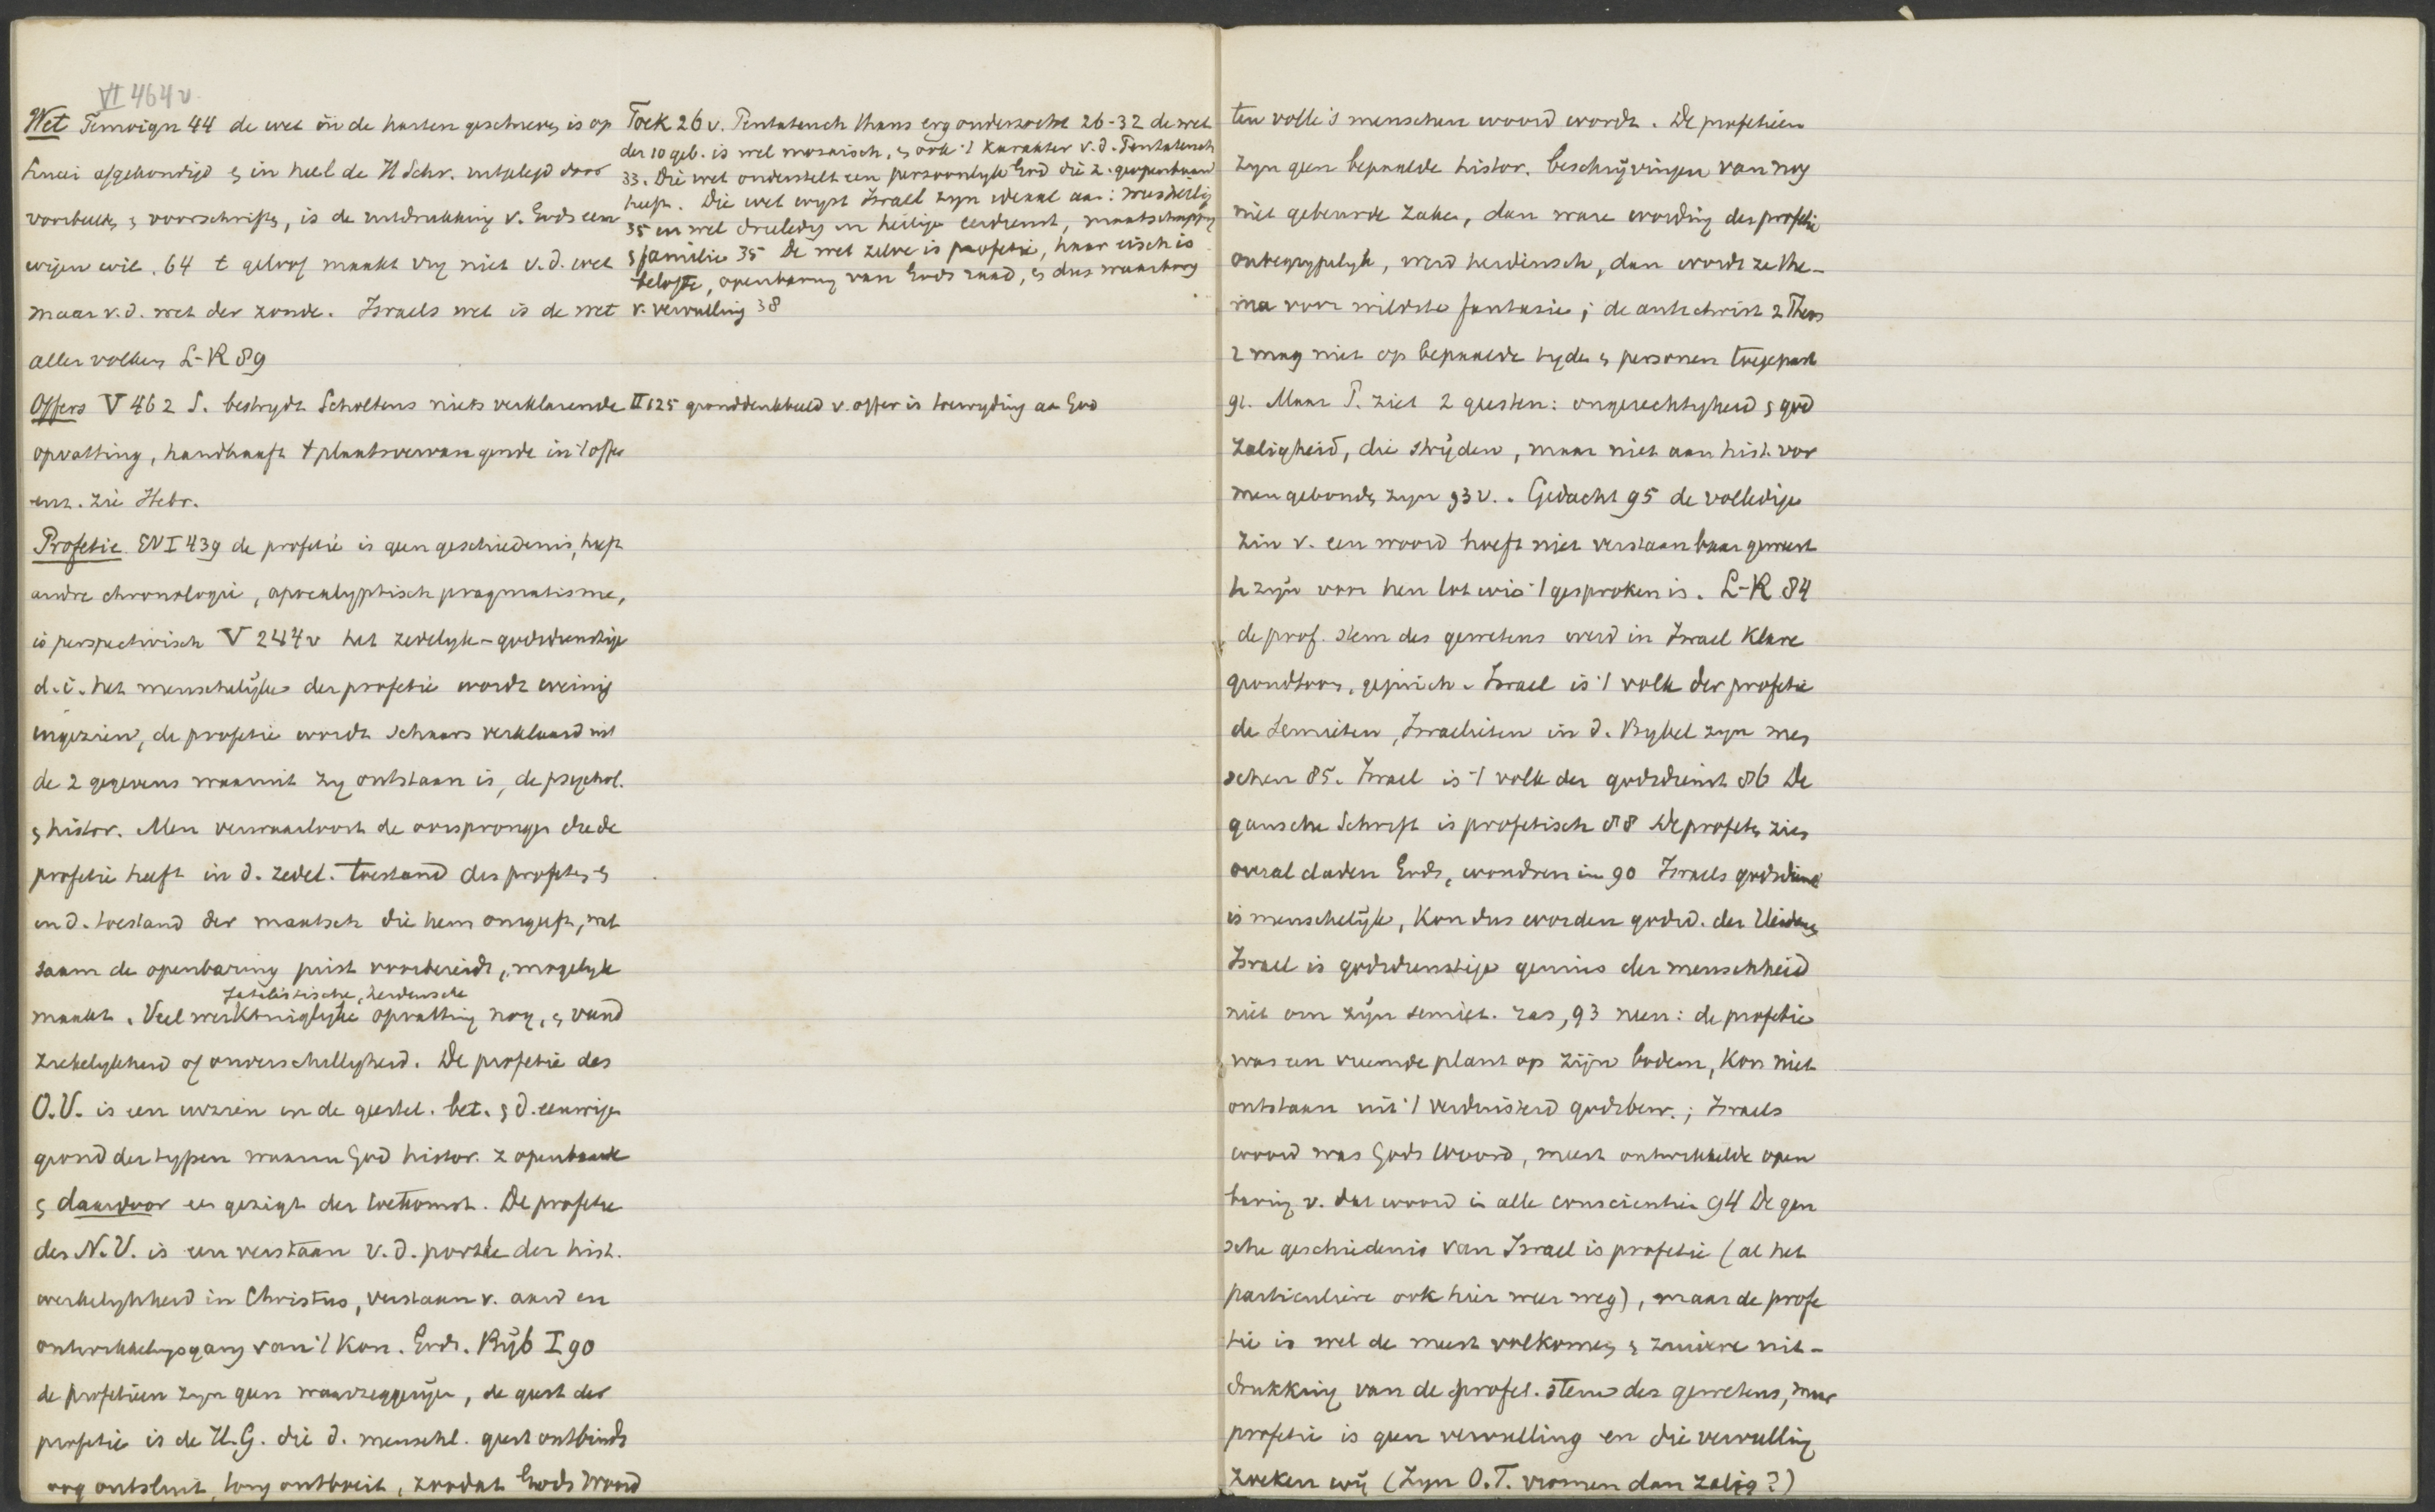 VI 464 v.
Wet Temoign 44 de wet in de harten geschreven, is op
Sinai afgekondigd & in heel de H Schr. uitgelegd door
voorbeelden & voorschriften, is de uitdrukking v. Gods een
wigen wil. 64 t geloof maakt vrij niet v.d. wet
maar v.d. wet der zonde. Israels wet is de wet
aller volken L-R 89
Offers V 462 S. bestrijdt Scholtens niets verklarende
opvatting, handhaaft t plaatsvervangende in 't offer
enz. zie Hebr.
Profetie EN I 439 de profetie is geen geschiedenis, heeft
andre chronologie, apocalyptisch pragmatisme,
is perspectivisch V 244 v het zedelyk-godsdienstige
d.i. het menschelijke der profetie wordt weinig
ingezien, de profetie wordt schaars verklaard uit
de 2 gegevens waaruit zy ontstaan is, de psychol.
& histor. Men verwaarloost de oorsprongen die de
profetie heeft in d. zedel. toestand des profeten &
in d. toestand der maatsch die hem omgeeft, wat
saam de openbaring juist voorbereidt, mogelyk
fatalistische, heidensche
maakt. Veel werktuiglyke opvatting nog, & vand
zakelykheid of onverschilligheid. De profetie des
O.V. is een inzien in de geestel. bet. & d. eeuwige
grond der typen waarin God histor. z openbaarde
& daardoor een gezigt der toekomst. De profetie
des N.V. is een verstaan v.d. portée der hist.
werkelykheid in Christus, verstaan v. aard en
ontwikkelingsgang van 't Kon. Gods. Bijb I 90
de profetieen zyn geen waarzeggerijen, de geest der
profetie is de H.G. die d. menschl. geest ontbindt
oog ontsluit, tong ontboeit, zoodat Gods Woord
Toek 26 v. Pentateuch thans erg onderzocht 26-32 de wet
der 10 geb. is wel mozaisch, & ook 't karakter v.d. Pentateuch
33. Die wet onderstelt een persoonlyk God die z. geopenbaard
heeft. Die wet wyst Israel zyn ideaal aan: wees heilig
35 en wel drieledig in heilige eerdienst, maatschappy
& familie 35 De wet zelve is profetie, haar eisch is
belofte, openbaring van Gods raad, & dus waarborg
v. vervulling 38
II 125 gronddenkbeeld v. offer is toewyding aan God
ten volle 's menschen woord wordt. De profetieen
zyn geen bepaalde histor. beschrijvingen van nog
niet gebeurde zaken, dan ware wording der profetie
onbegrypelyk, werd heidensch, dan wordt ze the-
ma voor wildste fantasie; de antichrist 2 Thess
2 mag niet op bepaalde tyden & personen toegepast
91. Maar P. ziet 2 geesten: ongerechtigheid & god
zaligheid, die strijden, maar niet aan hist. vor
men gebonden zyn 93 v. Gedacht 95 de volledige
zin v. een woord hoeft niet verstaanbaar geweest
te zijn voor hen tot wie 't gesproken is. L-R 84
de prof. stem des gewetens werd in Israel klare
Israel is 't volk der profetie
de Semieten, Israelieten in d. Bybel zyn men
schen 85. Israel is 't volk der godsdienst 86 De
gansche Schrift is profetisch 88 De profeten zien
overal daden Gods, wondren in 90 Israels godsdienst
is menschelijk, kon dus worden godsd. der Heidenen
Israel is godsdienstige genius der menschheid
niet om zijn semiet. ras, 93 neen: de profetie
was een vreemde plant op zijn bodem, kon niet
ontstaan uit 't verduisterd godsbew.; Israels
woord was Gods Woord, meest ontwikkelde open
baring v. dat woord in alle conscientien 94 De gan
sche geschiedenis van Israel is profetie (al het
particuliere ook hier weer weg), maar de profe
tie is wel de meest volkomen & zuivere uit-
drukking van de profet. stem des gewetens, maar
profetie is geen vervulling en die vervulling
zoeken wij (zyn O.T. vromen dan zalig?)